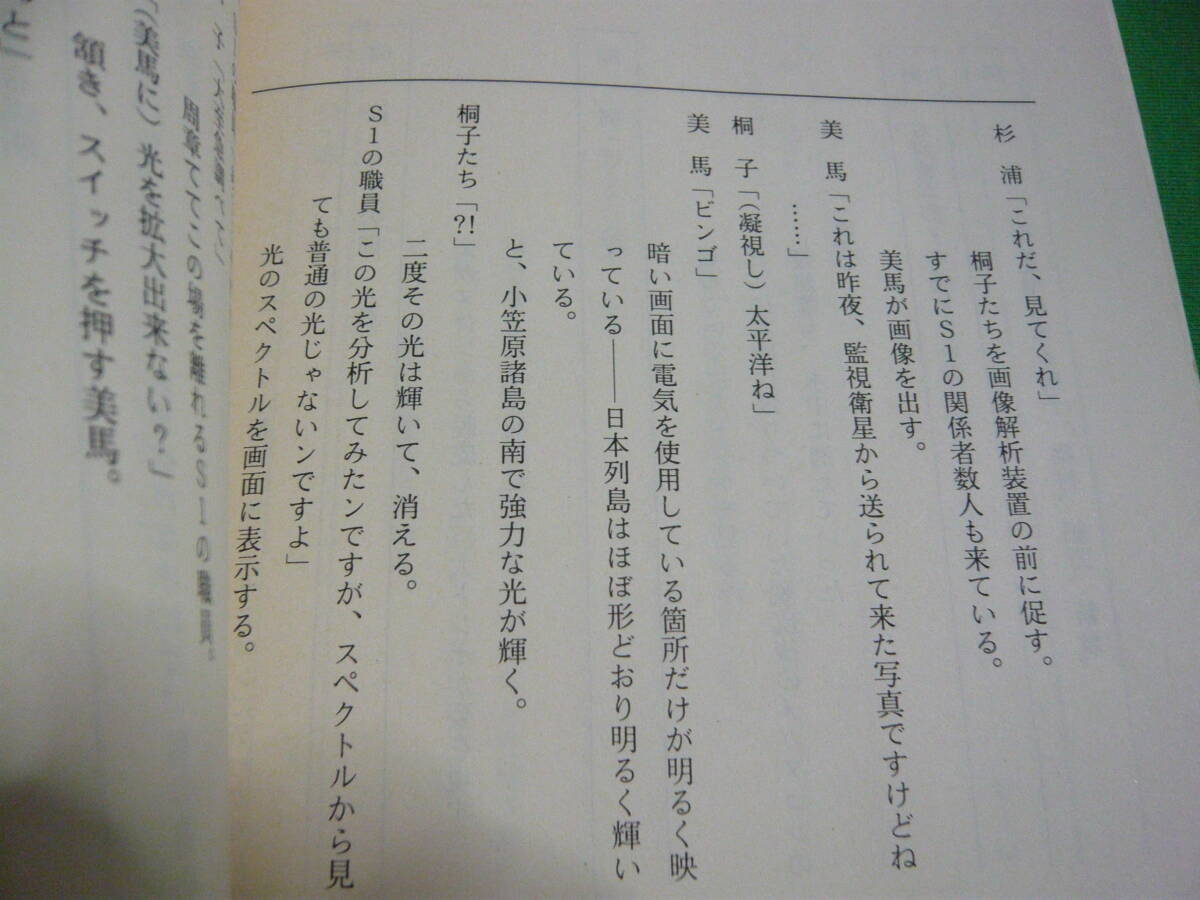 杉　浦「これだ、見てくれ」
桐子たちを画像解析装置の前に促す。
すでにS1の関係者数人も来ている。
美馬が画像を出す。
美　馬「これは昨夜、監視衛星から送られて来た写真ですけどね
……」
桐　子「(凝視し)太平洋ね」
美　馬「ビンゴ」
暗い画面に電気を使用している箇所だけが明るく映
っている――日本列島はほぼ形どおり明るく輝い
ている。
と、小笠原諸島の南で強力な光が輝く。
桐子たち「?!」
二度その光は輝いて、消える。
S1の職員「この光を分析してみたンですが、スペクトルから見
ても普通の光じゃないンですよ」
光のスペクトルを画面に表示する。
周章ててこの場を離れるS1の職員。
「(美馬に)光を拡大出来ない?」
頷き、スイッチを押す美馬。
と」